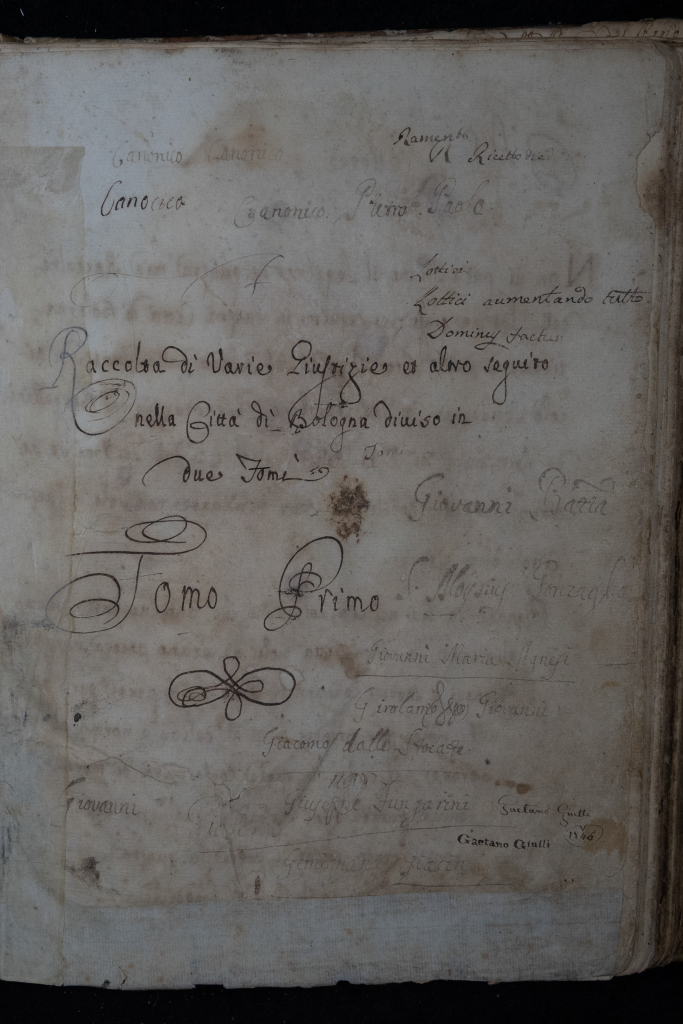 Ramento
Canonico Canonica
Ricetto
Canocica
Canonico Pietro Paolo
Lottici
Lottici aumentando tutto
Dominus factus
Raccolta di Varie Giustizie et altro seguito
nella Città di Bologna diviso in
due Tomi
Tomi
Giovanni Batta
Tomo Primo
S. Aloysius Gonzagha
Giovanni Maria Agnesi
Girolamo Giovanni
Giacomo dalle
Giovanni
Giuseppe Gaetano Giulli
1746
Gaetano Giulli